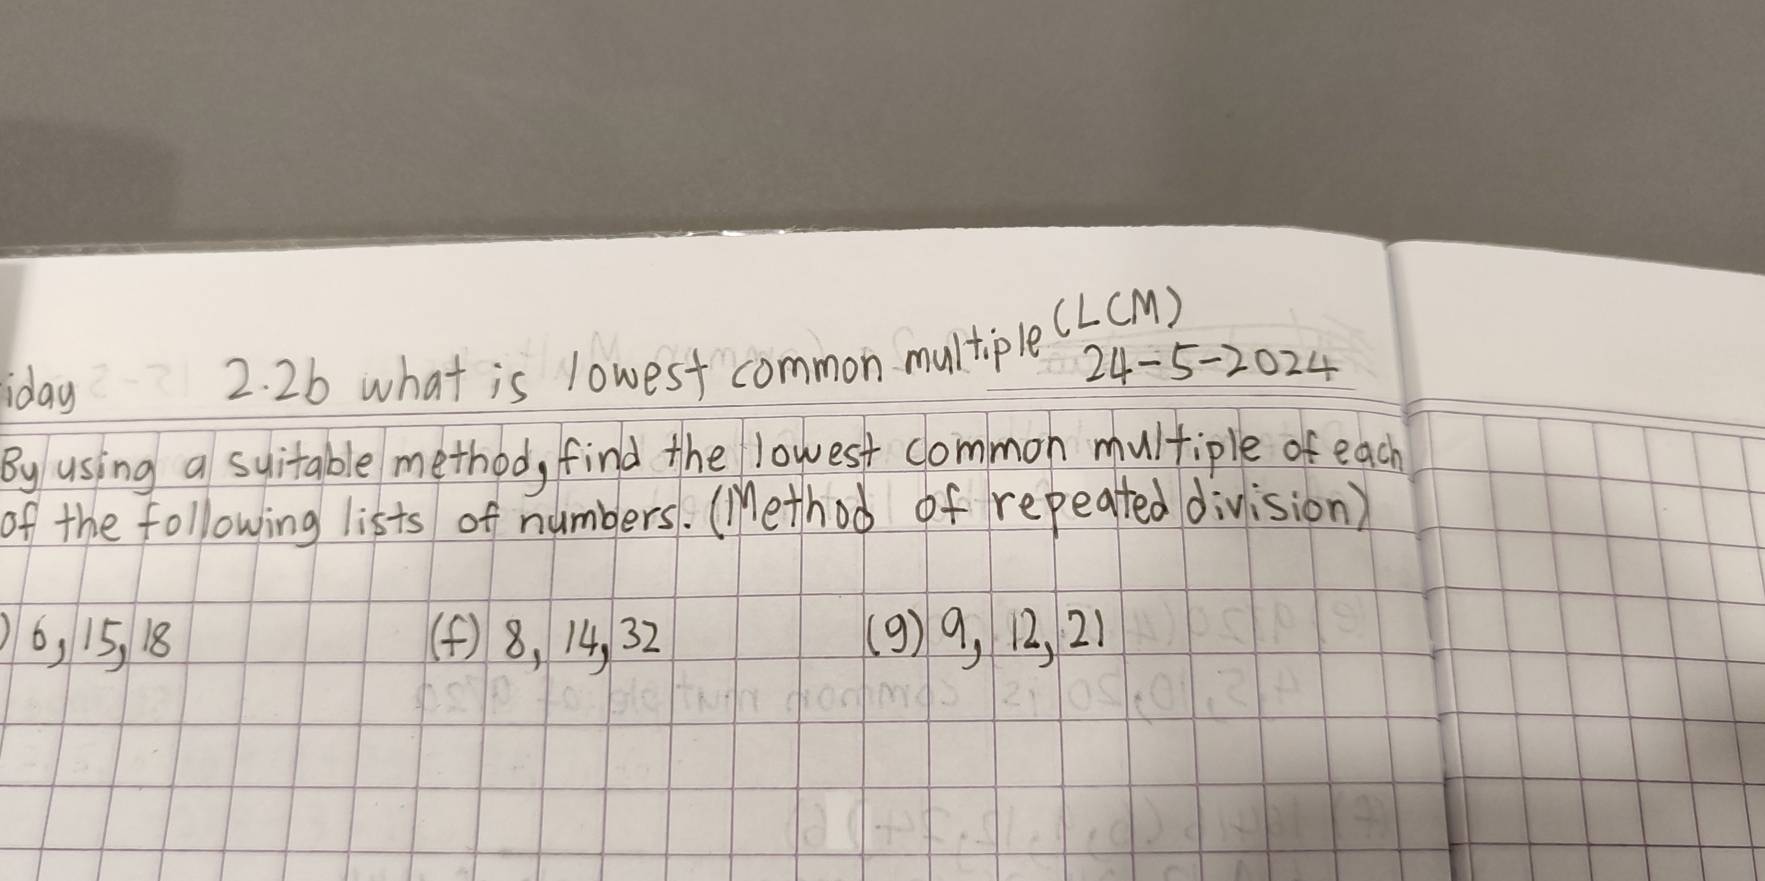 iday 2.2b what is lowest common multiple (LCM)
24-5-2024
By using a suitable method, find the lowest common multiple of each
of the following lists of numbers. (Method of repeated division)
) 6, 15, 18 (f) 8, 14, 32 (g) 9, 12, 21